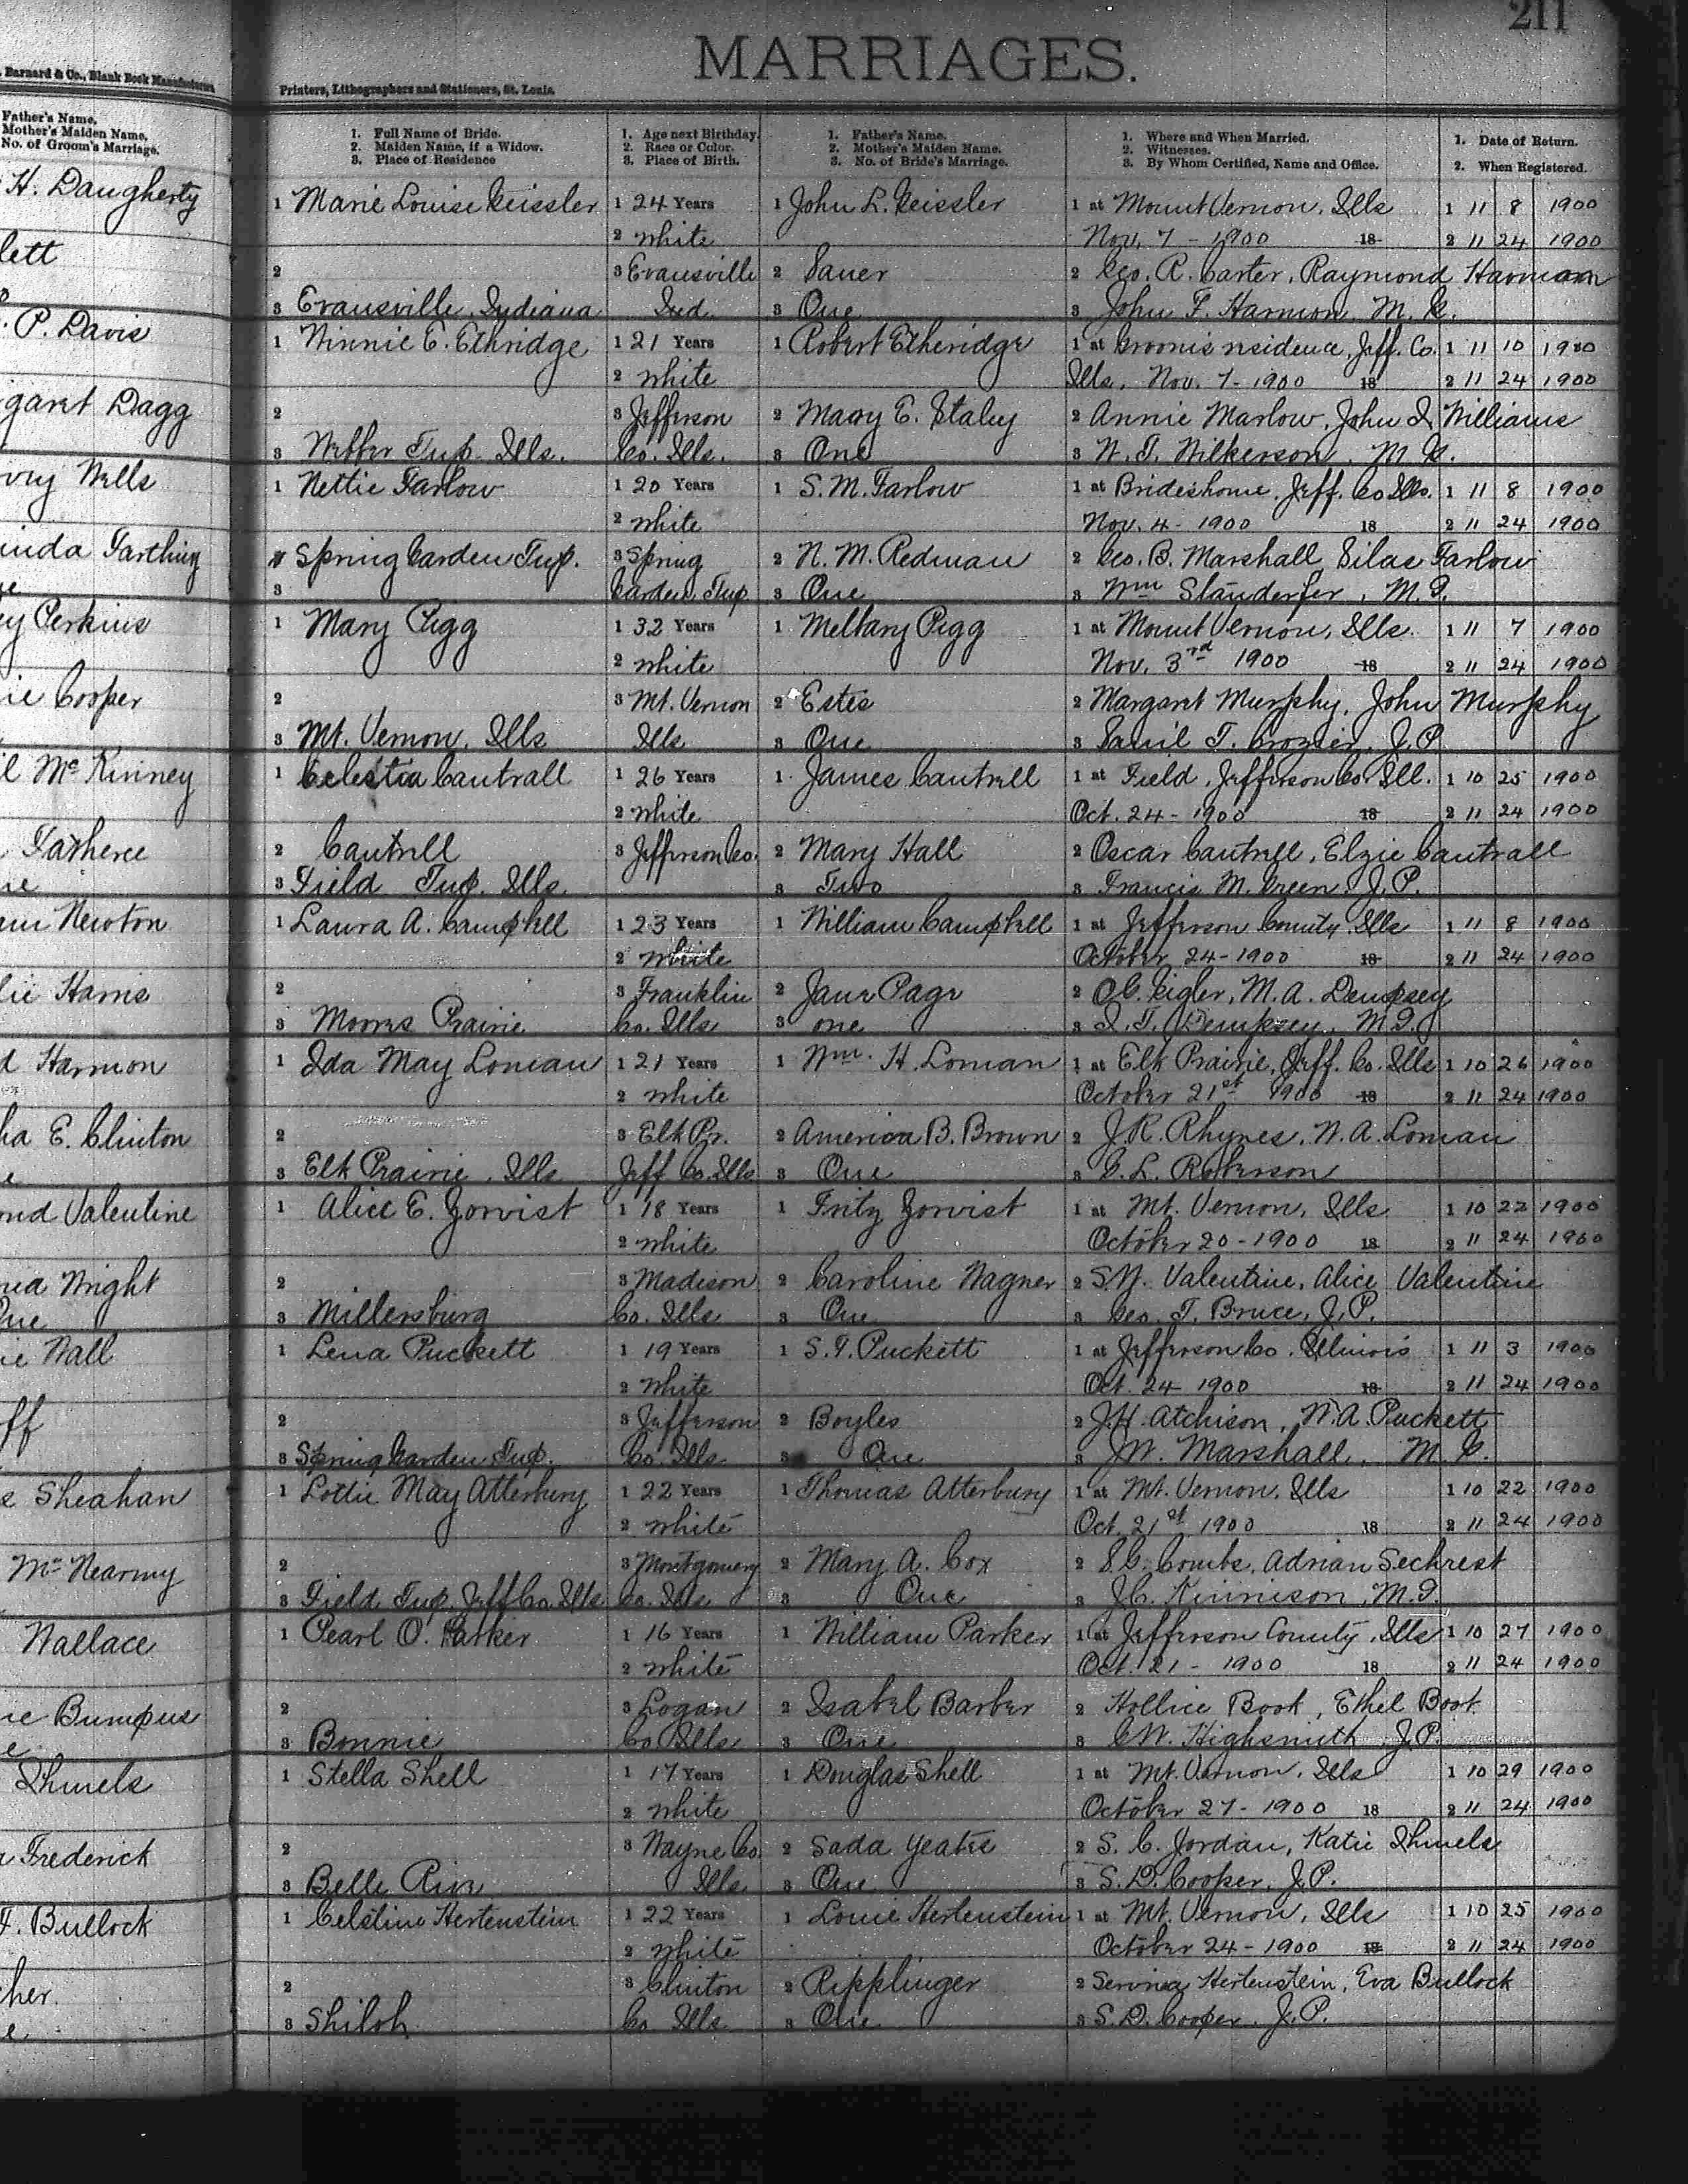 211
MARRIAGES.
Barnard & Co., Blank Book Manufacturers,
Printers, Lithographers and Stationers, St. Louis.
Father's Name.
Mother's Maiden Name.
No. of Groom's Marriage.
1. Full Name of Bride.
2. Maiden Name, if a Widow.
3. Place of Residence
1. Age next Birthday.
2. Race or Color.
3. Place of Birth.
1. Father's Name.
2. Mother's Maiden Name.
3. No. of Bride's Marriage.
1. Where and When Married.
2. Witnesses.
3. By Whom Certified, Name and Office.
1. Date of Return.
2. When Registered.
H. Daugherty 1 Marie Louise Geissler 1 24 Years 1 John L. Geissler 1 at Mount Vernon, Ills 1 11 8 1900
2 White Nov. 7 - 1900 18 2 11 24 1900
lett 2 3 Evansville 2 Sauer 2 Geo. R. Carter, Raymond Harmon
3 Evansville, Indiana Ind. 3 One 3 John F. Harmon, M. G.
P. Davis 1 Minnie E. Ethridge 1 21 Years 1 Robert Etheridge 1 at Groom's residence, Jeff. Co. 1 11 10 1900
2 White Ills. Nov. 7 - 1900 18 2 11 24 1900
garet Dagg 2 3 Jefferson 2 Mary E. Staley 2 Annie Marlow, John I Williams
3 Webber Twp. Ills. Co. Ills. 3 One 3 W. T. Wilkerson, M G.
Wells 1 Nettie Farlow 1 20 Years 1 S. M. Farlow 1 at Brides home, Jeff. Co Ills. 1 11 8 1900
2 White Nov. 4 - 1900 18 2 11 24 1900
inda Farthing Spring Garden Twp. 3 Spring 2 N. M. Redman 2 Geo. B. Marshall, Silas Farlow
3 Garden Twp 3 One 3 Wm Standerfer, M. G.
ey Perkins 1 Mary Pigg 1 32 Years 1 Meltary Pigg 1 at Mount Vernon, Ills. 1 11 7 1900
2 White Nov. 3rd 1900 18 2 11 24 1900
ie Cooper 2 3 Mt. Vernon 2 Estes 2 Margaret Murphy, John Murphy
3 Mt. Vernon, Ills Ills 3 One 3 Sam'l T. Crozier, J. P
l McKinney 1 Celestia Cantrall 1 26 Years 1 James Cantrell 1 at Field, Jefferson Co. Ill. 1 10 25 1900
2 White Oct. 24 - 1900 18 2 11 24 1900
2 Cantrell 3 Jefferson Co. 2 Mary Hall 2 Oscar Cantrell, Elzie Cantrall
3 Field Twp. Ills. 3 Two 3 Francis M. Green, J. P.
Newton 1 Laura A. Campbell 1 23 Years 1 William Campbell 1 at Jefferson County Ills 1 11 8 1900
2 White October 24 - 1900 18 2 11 24 1900
lie Harris 2 3 Franklin 2 Jane Page 2 O. C. Eigler, M. A. Dempsey
3 Moores Prairie Co. Ills 3 one 3 I. T. Dempsey, M G.
d Harmon 1 Ida May Loman 1 21 Years 1 Wm. H. Loman 1 at Elk Prairie, Jeff. Co. Ills 1 10 26 1900
2 White October 21st 1900 18 2 11 24 1900
ha E. Clinton 2 3 Elk Pr. 2 America B. Brown 2 J. R. Rhynes, W. A. Loman
3 Elk Prairie, Ills Jeff Co. Ills 3 One 3 C. L. Roberson
ond Valentine 1 Alice E. Zorvist 1 18 Years 1 Fritz Zorvist 1 at Mt. Vernon, Ills 1 10 22 1900
2 White October 20 - 1900 18 2 11 24 1900
Wright 2 3 Madison 2 Caroline Wagner 2 S. Y. Valentine, Alice Valentine
One 3 Millersburg Co. Ills 3 One 3 Geo. T. Bruce, J. P.
ie Wall 1 Lena Puckett 1 19 Years 1 S. T. Puckett 1 at Jefferson Co. Illinois 1 11 3 1900
2 White Oct. 24 1900 18 2 11 24 1900
ff 2 3 Jefferson 2 Boyles 2 J. H. Atchison, W. A. Puckett
3 Spring Garden Twp. Co. Ills. 3 One 3 J. W. Marshall, M. G.
Sheahan 1 Lottie May Atterbury 1 22 Years 1 Thomas Atterbury 1 at Mt. Vernon, Ills 1 10 22 1900
2 White Oct. 21st 1900 18 2 11 24 1900
2 3 Montgomery 2 Mary A. Cox 2 S. C. Combs, Adrian Sechrest
3 Field Twp. Jeff Co. Ills Co. Ills 3 One 3 J. C. Kinnison, M. G.
Wallace 1 Pearl O. Parker 1 16 Years 1 William Parker 1 at Jefferson County, Ills 1 10 27 1900
2 White Oct. 21 - 1900 18 2 11 24 1900
Bumpus 2 3 Logan 2 Isabel Barber 2 Hollice Book, Ethel Book
3 Bonnie Co Ills 3 One 3 C. W. Highsmith, J. P.
Ihmels 1 Stella Shell 1 17 Years 1 Douglas Shell 1 at Mt. Vernon, Ills 1 10 29 1900
2 White October 27 - 1900 18 2 11 24 1900
Frederick 2 3 Wayne Co. 2 Sada Yeates 2 S. C. Jordan, Katie Ihmels
3 Belle Rive Ills 3 One 3 S. D. Cooper, J. P.
Bullock 1 Celstine Hertenstein 1 22 Years 1 Louie Hertenstein 1 at Mt. Vernon, Ills 1 10 25 1900
2 White October 24 - 1900 18 2 11 24 1900
cher 2 3 Clinton 2 Ripplinger 2 Hertenstein, Eva Bullock
3 Shiloh Co. Ills 3 One 3 S. D. Cooper, J. P.